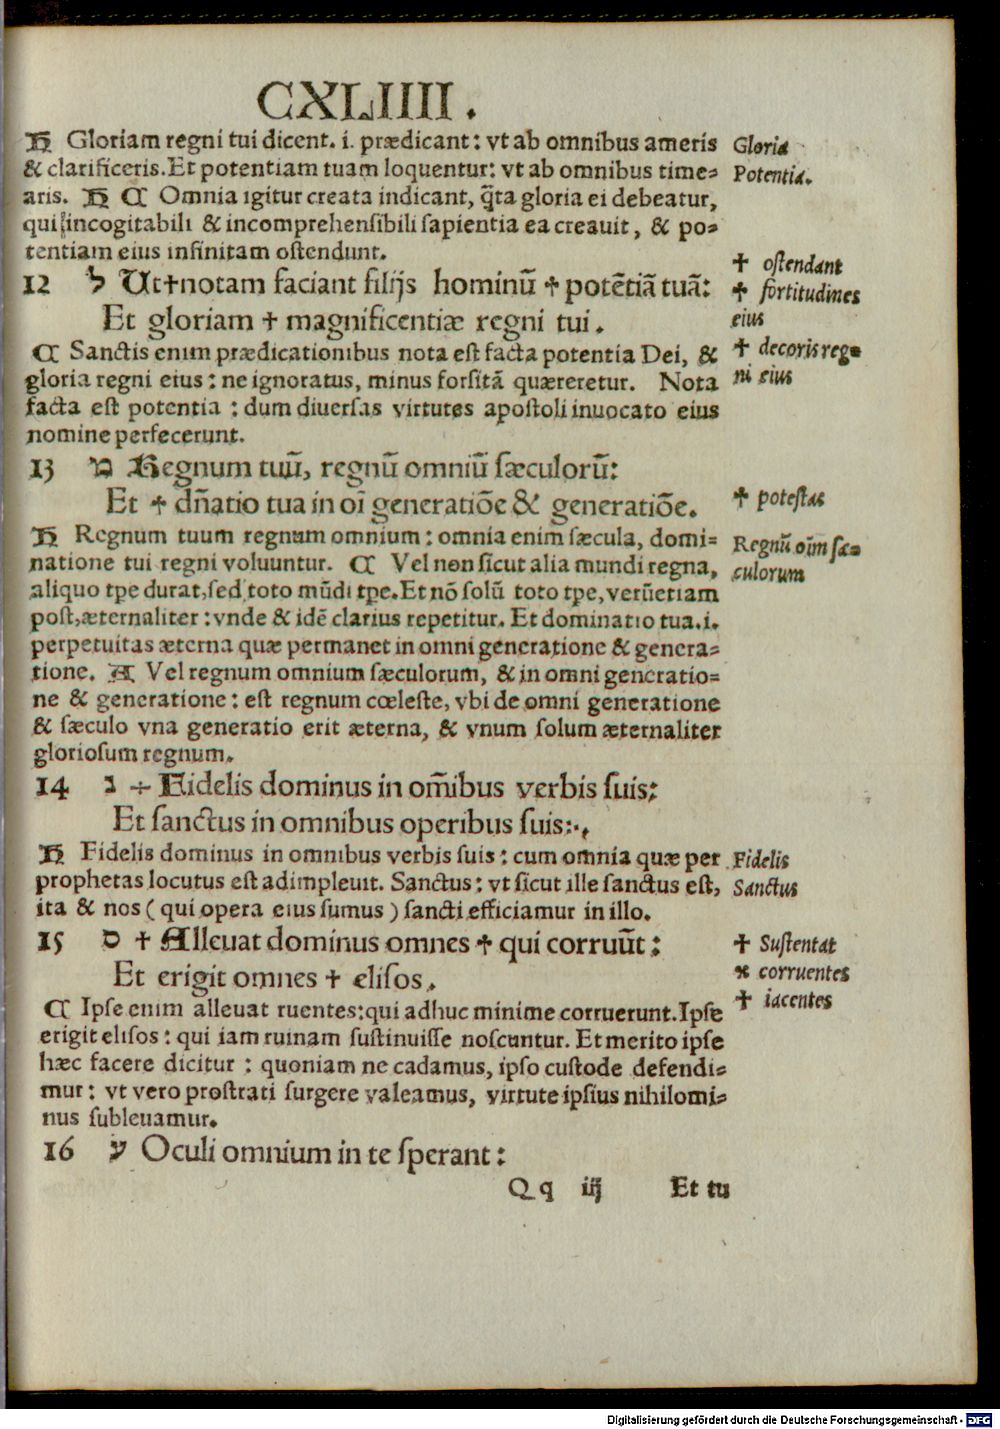 CXLIIII.
H Gloriam regni tui dicent. i. prædicant: vt ab omnibus ameris
& clarificeris. Et potentiam tuam loquentur: vt ab omnibus time=
aris. H C Omnia igitur creata indicant, q̃ta gloria ei debeatur,
qui incogitabili & incomprehensibili sapientia ea creauit, & po=
tentiam eius infinitam ostendunt.
Gloria
Potentia.
12 ל Ut✝notam faciant filijs hominũ ✝ potẽtiã tuã:
Et gloriam ✝ magnificentiæ regni tui.
✝ ostendant
✝ fortitudines
eius
✝ decoris reg=
ni eius
C Sanctis enim prædicationibus nota est facta potentia Dei, &
gloria regni eius: ne ignoratus, minus forsitã quæreretur. Nota
facta est potentia: dum diuersas virtutes apostoli inuocato eius
nomine perfecerunt.
13 מ Regnum tuũ, regnũ omniũ sæculorũ:
Et ✝ dñatio tua in oĩ generatiõe & generatiõe.
✝ potestas
H Regnum tuum regnum omnium: omnia enim sæcula, domi=
natione tui regni voluuntur. C Vel non sicut alia mundi regna,
aliquo tpe durat, sed toto mũdi tpe. Et nõ solũ toto tpe, verũetiam
post, æternaliter: vnde & idẽ clarius repetitur. Et dominatio tua. i.
perpetuitas æterna quæ permanet in omni generatione & genera=
tione. A Vel regnum omnium sæculorum, & in omni generatio=
ne & generatione: est regnum cœleste, vbi de omni generatione
& sæculo vna generatio erit æterna, & vnum solum æternaliter
gloriosum regnum.
Regnũ oĩm sæ=
culorum
14 נ ÷ Fidelis dominus in om̃ibus verbis suis:
Et sanctus in omnibus operibus suis:
H Fidelis dominus in omnibus verbis suis: cum omnia quæ per
prophetas locutus est adimpleuit. Sanctus: vt sicut ille sanctus est,
ita & nos (qui opera eius sumus) sancti efficiamur in illo.
Fidelis
Sanctus
15 ס ✝ Alleuat dominus omnes ✝ qui corruũt:
Et erigit omnes ✝ elisos.
✝ Sustentat
✝ corruentes
✝ iacentes
C Ipse enim alleuat ruentes: qui adhuc minime corruerunt. Ipse
erigit elisos: qui iam ruinam sustinuisse noscuntur. Et merito ipse
hæc facere dicitur: quoniam ne cadamus, ipso custode defendi=
mur: vt vero prostrati surgere valeamus, virtute ipsius nihilomi=
nus subleuamur.
16 ע Oculi omnium in te sperant:
Qq iij Et tu
Digitalisierung gefördert durch die Deutsche Forschungsgemeinschaft - DFG